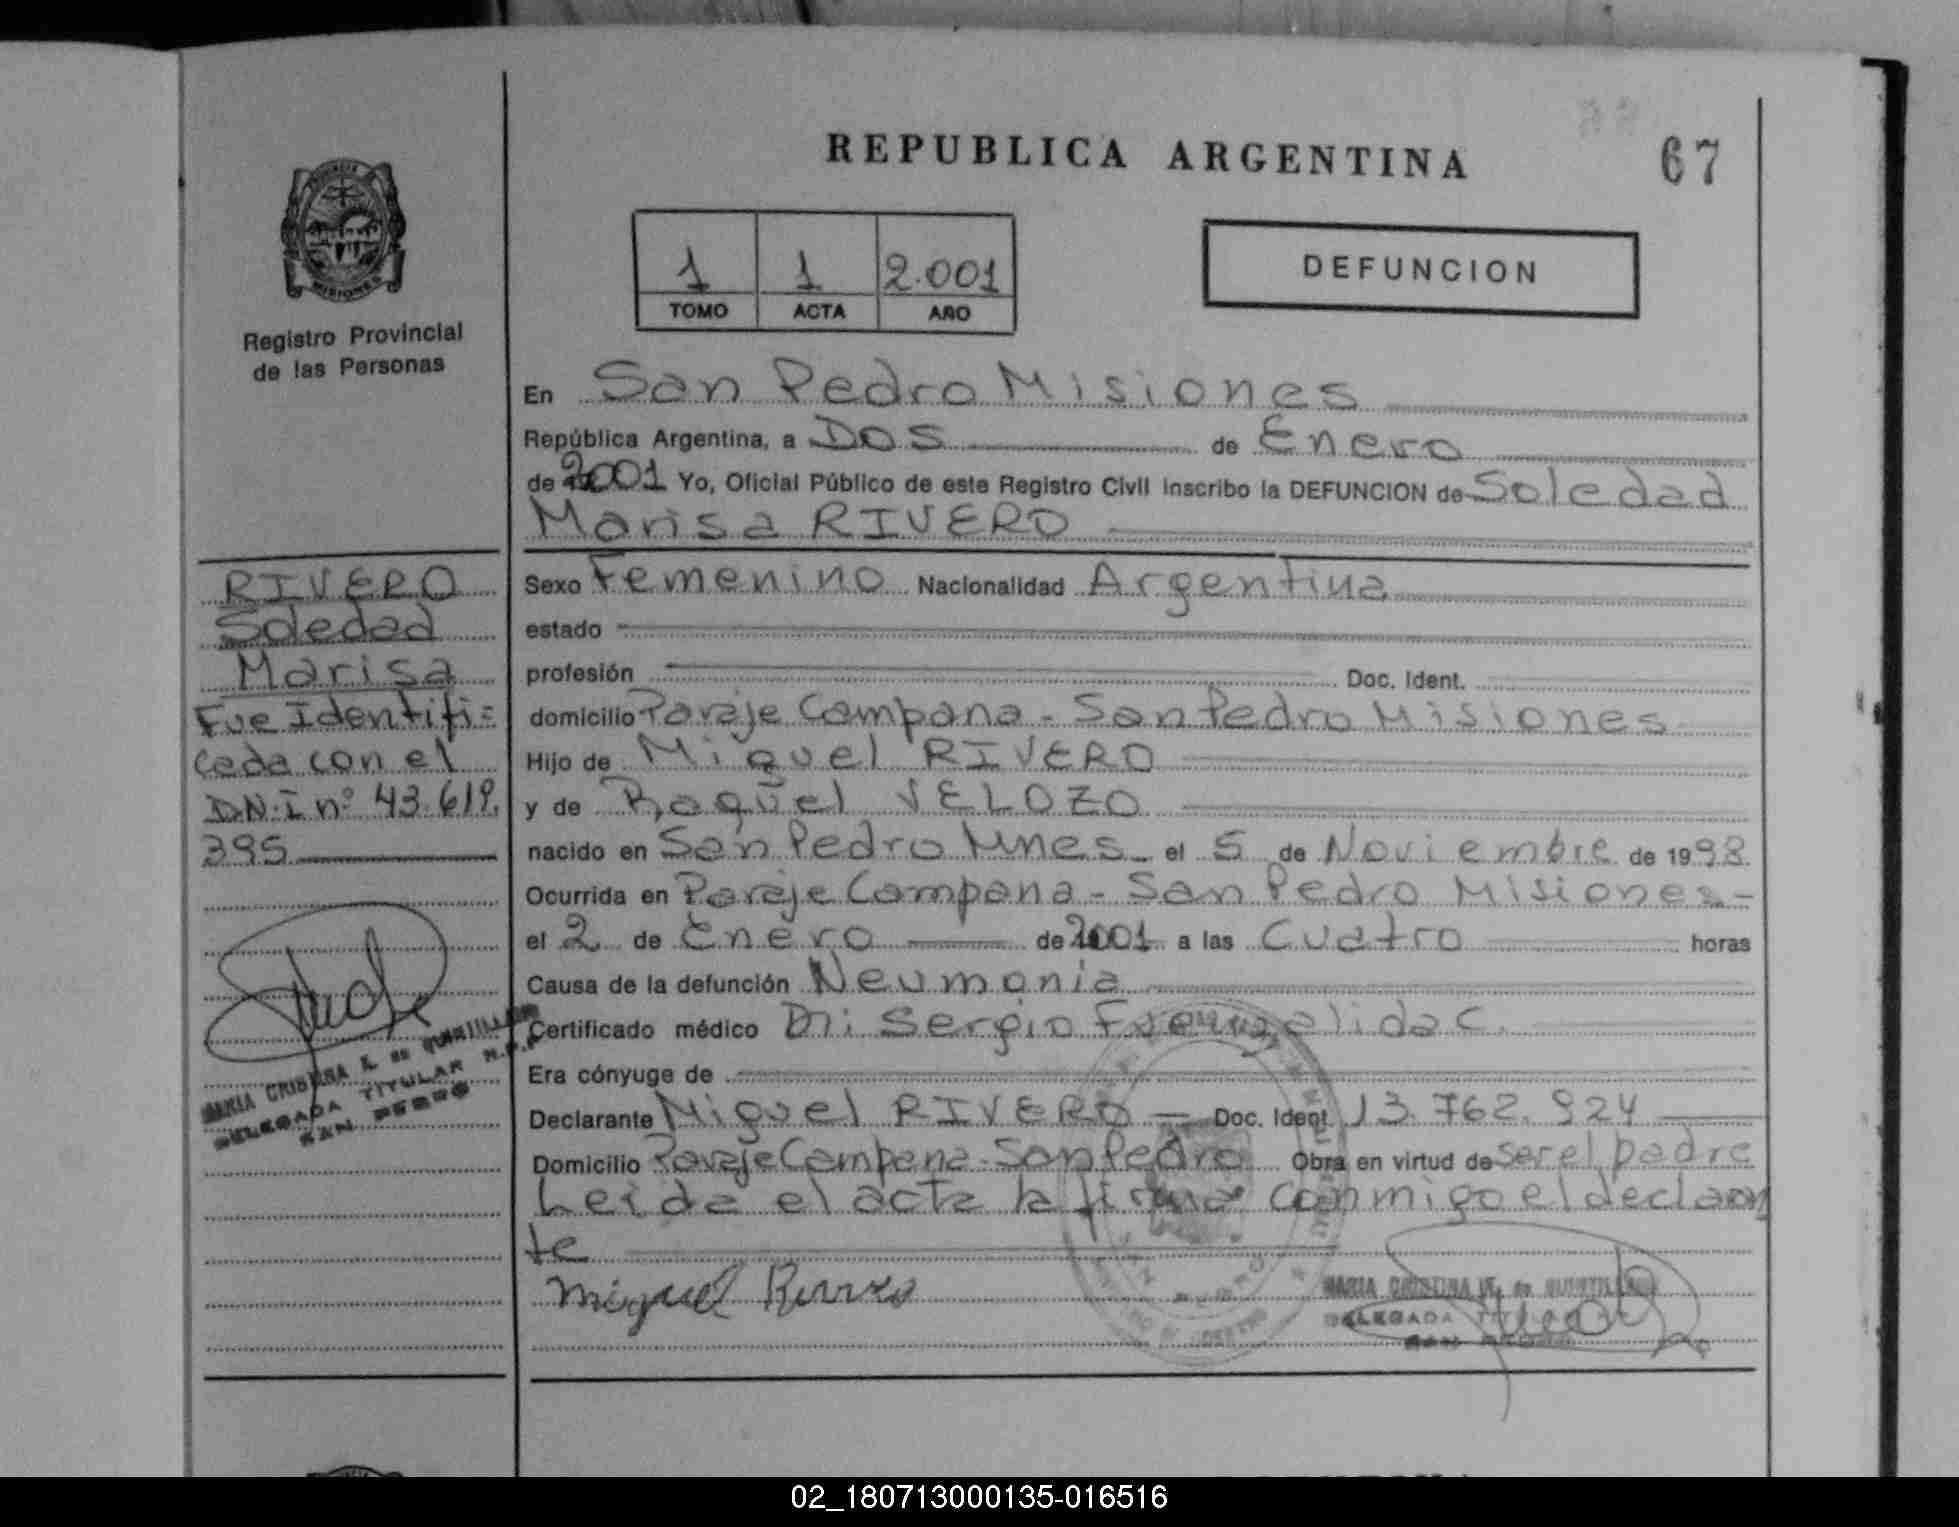 REPUBLICA ARGENTINA
67
1 1 2.001
TOMO ACTA AÑO
DEFUNCION
PROVINCIA
MISIONES
Registro Provincial
de las Personas
En San Pedro Misiones
República Argentina, a Dos de Enero
de 2001 Yo, Oficial Público de este Registro Civil inscribo la DEFUNCION de Soledad
Marisa RIVERO
RIVERO
Soledad
Marisa
Fue Identifi=
cada con el
D.N.I nº 43.619.
395
MARIA CRISTINA de
DELEGADA TITULAR R.P.P.
SAN PEDRO
Sexo Femenino Nacionalidad Argentina
estado
profesión Doc. Ident.
domicilio Paraje Campana - San Pedro Misiones
Hijo de Miguel RIVERO
y de Raquel VELOZO
nacido en San Pedro Mnes el 5 de Noviembre de 1998
Ocurrida en Paraje Campana - San Pedro Misiones -
el 2 de Enero de 2001 a las Cuatro horas
Causa de la defunción Neumonia
Certificado médico Dr: Sergio C.
Era cónyuge de
Declarante Miguel RIVERO Doc. Ident. 13.762.924
Domicilio Paraje Campana - San Pedro Obra en virtud de ser el padre
Leida el acta la firma conmigo el declaran
te
Miguel Rivero
MARIA CRISTINA de
DELEGADA
SAN PEDRO
02_180713000135-016516